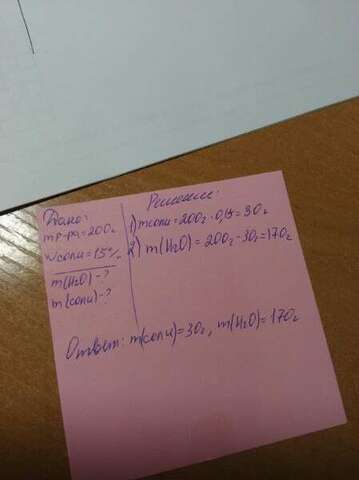 Дано:
mр-ра=200г
Wсоли=15%
m(H₂O)-?
m(соли)-?
Решение:
1) mсоли=200г·0,15=30г
2) m(H₂O)=200г-30г=170г
Ответ: m(соли)=30г, m(H₂O)=170г